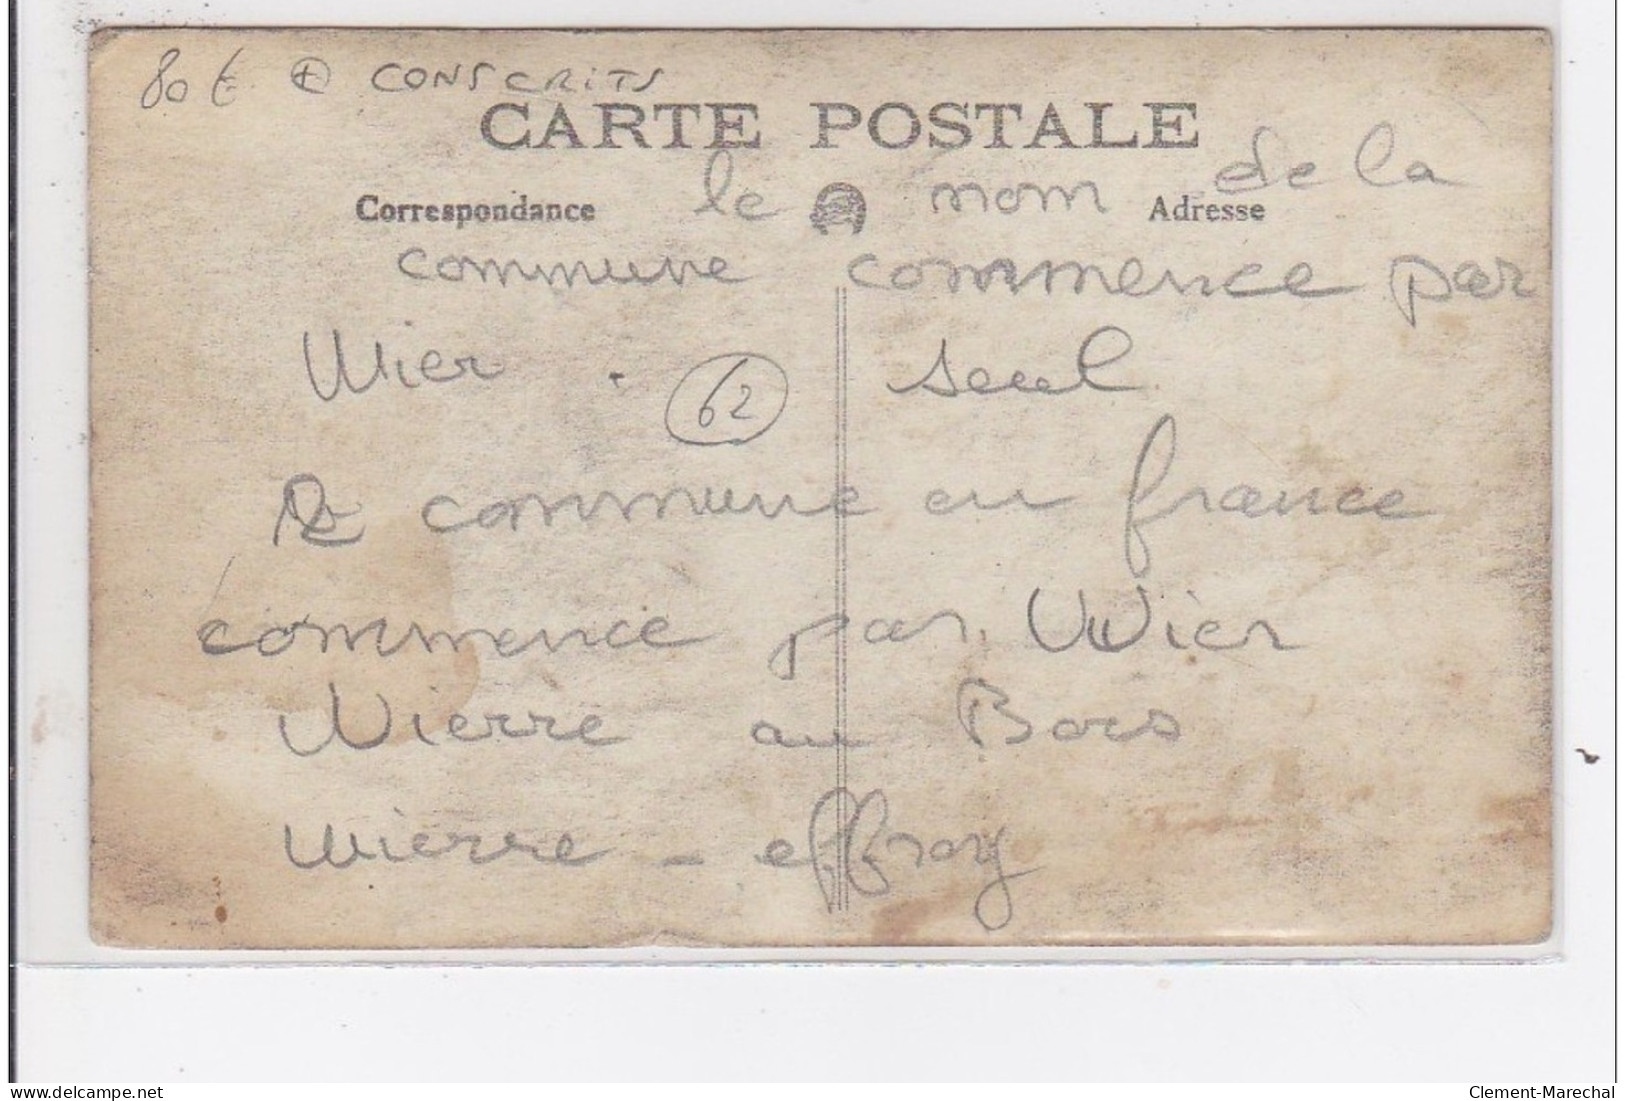 80 € + CONSCRITS
CARTE POSTALE
Correspondance le nom de la Adresse
commune commence par
Wier . 62 seul
2 commune en france
commence par Wier
Wierre au Bois
Wierre - effroy
delcampe.net
Clement-Marechal